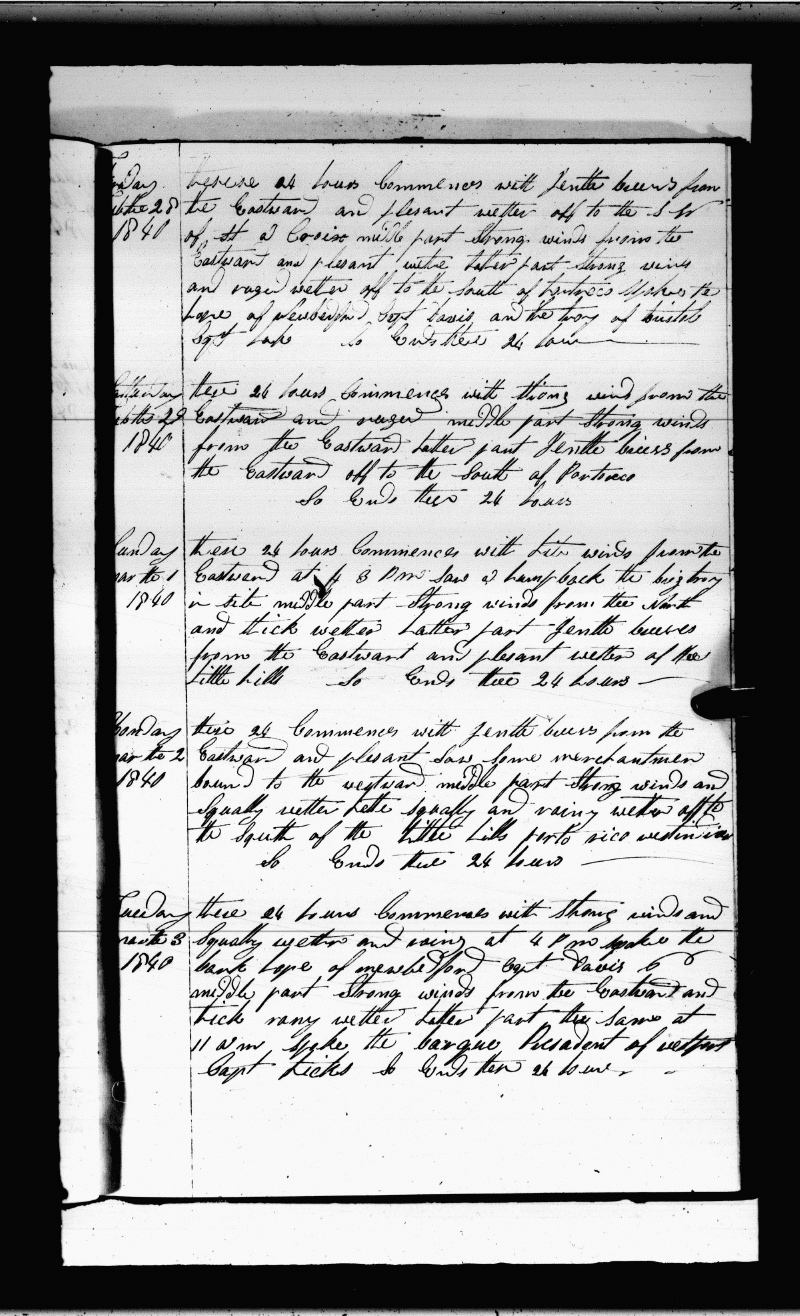 Friday these 24 hours Commences with Jentle breess from
Febthe 28 the Eastward and plesant wetter off to the S W
1840 of St a Croix middle part Strong winds from the
Eastward and plesant wetter Latter part Strong winds
and ruged wetter off to the South of Portreco Spoke the
hope of Newbedford Capt Davis and the troy of bristol
Capt So Ends these 24 hours
Satterday these 24 hours Commences with Strong wind from the
Febthe 29 Eastward and ruged middle part Strong winds
1840 from the Eastward Latter part Jentle breess from
the Eastward off to the South of Portreco
So Ends these 24 hours
Sunday these 24 hours Commences with Lite winds from the
marthe 1 Eastward at 3 P m Saw a humpback the brig troy
1840 in site middle part Strong winds from the North
and thick wetter Latter part Jentle breeses
from the Eastwart and plesant wetter of the
Little hills So Ends these 24 hours
Monday these 24 Commences with Jentle breess from the
marthe 2 Eastward and plesant Saw Some merchantmen
1840 bound to the westward middle part Strong winds and
Squally wetter Latte squally and rainy wetter off to
the South of the Little hills porto rico westindies
So Ends these 24 hours
Tuesday these 24 hours Commences with Strong winds and
marthe 3 Squally wetter and rainy at 4 P m Spoke the
1840 bark hope of newbedford Capt Davis
middle part Strong winds from the Eastward and
thick rany wetter Latter part the Same at
11 a m Spoke the barque Presadent of westport
Capt hicks So Ends these 24 hours